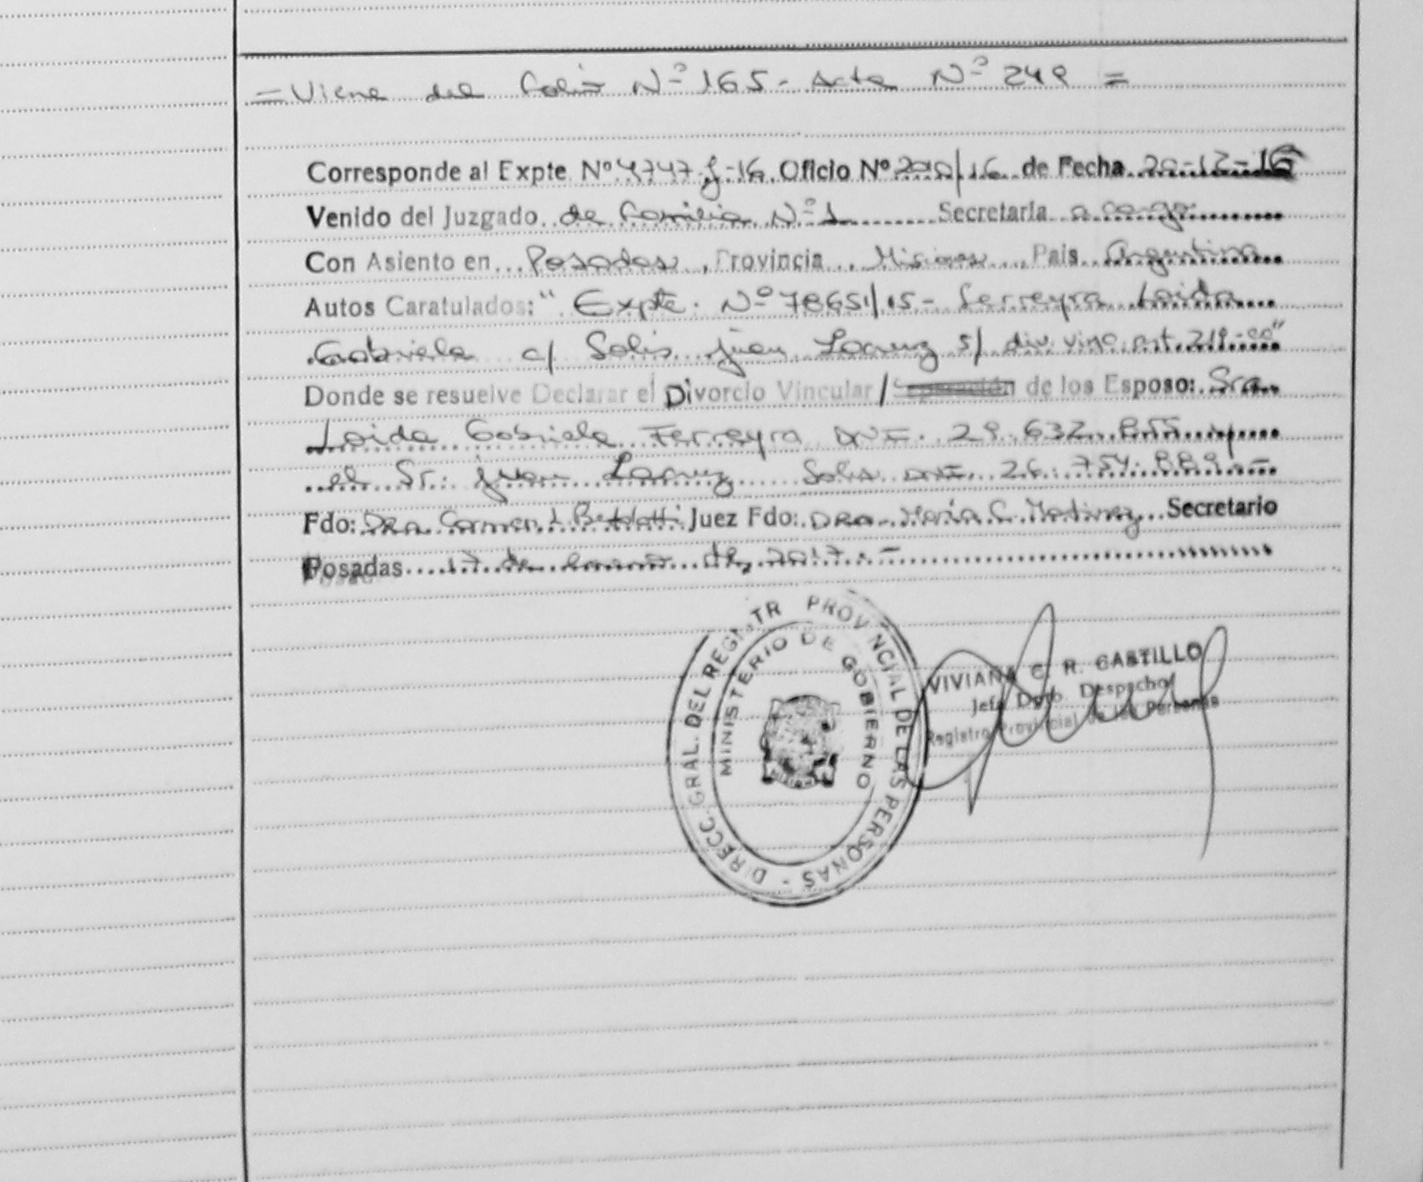 = Viene del Folio Nº 165 - Acta Nº 249 =
Corresponde al Expte Nº 4747-J-16 Oficio Nº /16 de Fecha 20-12-16
Venido del Juzgado de Familia Nº 1 Secretaria a cargo
Con Asiento en Posadas, Provincia Misiones, Pais Argentina
Autos Caratulados: "Expte. Nº 78651/15 - Ferreyra Loida
Gabriela c/ Solis Juan s/ div. vinc. art."
Donde se resuelve Declarar el Divorcio Vincular / Separación de los Esposo: Sra.
Loida Gabriela Ferreyra DNI. 29.632.855 y
el Sr. Juan Solis DNI. 26.754.889.-
Fdo: Dra. Carmen Juez Fdo: Dra. María C. Martinez Secretario
Posadas 17 de enero de 2017.-
DIRECC. GRAL. DEL REGISTR PROVINCIAL DE LAS PERSONAS -
MINISTERIO DE GOBIERNO
VIVIANA C. R. CASTILLO
Jefa Dpto. Despacho
Registro Provincial de las Personas